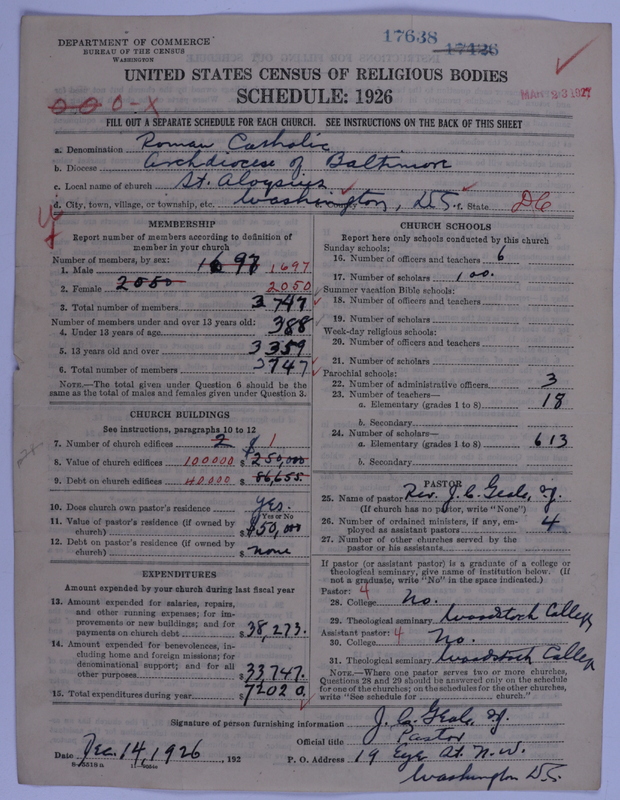 17638
17426
DEPARTMENT OF COMMERCE
BUREAU OF THE CENSUS
WASHINGTON
UNITED STATES CENSUS OF RELIGIOUS BODIES
SCHEDULE: 1926
MAR 23 1927
000-X
FILL OUT A SEPARATE SCHEDULE FOR EACH CHURCH. SEE INSTRUCTIONS ON THE BACK OF THIS SHEET
a. Denomination Roman Catholic
b. Diocese Archdiocese of Baltimore
c. Local name of church St. Aloysius
d. City, town, village, or township, etc. Washington, D.C. f. State DC
MEMBERSHIP
Report number of members according to definition of
member in your church
Number of members, by sex:
1. Male 1697 1697
2. Female 2050 2050
3. Total number of members 3747
Number of members under and over 13 years old:
4. Under 13 years of age 388
5. 13 years old and over 3359
6. Total number of members 3747
NOTE.—The total given under Question 6 should be the
same as the total of males and females given under Question 3.
CHURCH BUILDINGS
See instructions, paragraphs 10 to 12
7. Number of church edifices 2 1
8. Value of church edifices 100000 $ 250,000
9. Debt on church edifices 40000 $ 86,655.
10. Does church own pastor's residence Yes.
Yes or No
11. Value of pastor's residence (if owned by
church) $50,000
12. Debt on pastor's residence (if owned by
church) $ none
EXPENDITURES
Amount expended by your church during last fiscal year
13. Amount expended for salaries, repairs,
and other running expenses; for im-
provements or new buildings; and for
payments on church debt $38,273.
14. Amount expended for benevolences, in-
cluding home and foreign missions; for
denominational support; and for all
other purposes $33747.
15. Total expenditures during year $72020.
CHURCH SCHOOLS
Report here only schools conducted by this church
Sunday schools:
16. Number of officers and teachers 6
17. Number of scholars 100.
Summer vacation Bible schools:
18. Number of officers and teachers
19. Number of scholars
Week-day religious schools:
20. Number of officers and teachers
21. Number of scholars
Parochial schools:
22. Number of administrative officers 3
23. Number of teachers—
a. Elementary (grades 1 to 8) 18
b. Secondary
24. Number of scholars—
a. Elementary (grades 1 to 8) 613
b. Secondary
PASTOR
25. Name of pastor Rev. J. C. Geale, S.J.
(If church has no pastor, write "None")
26. Number of ordained ministers, if any, em-
ployed as assistant pastors 4
27. Number of other churches served by the
pastor or his assistants
If pastor (or assistant pastor) is a graduate of a college or
theological seminary, give name of institution below. (If
not a graduate, write "No" in the space indicated.)
Pastor: 4
28. College No.
29. Theological seminary Woodstock College
Assistant pastor: 4
30. College No.
31. Theological seminary Woodstock College
NOTE.—Where one pastor serves two or more churches,
Questions 28 and 29 should be answered only on the schedule
for one of the churches; on the schedules for the other churches,
write "See schedule for church."
Signature of person furnishing information J. C. Geale, S.J.
Official title Pastor
Date Dec. 14, 1926, 192 P. O. Address 19 Eye St. N.W.
Washington D.C.